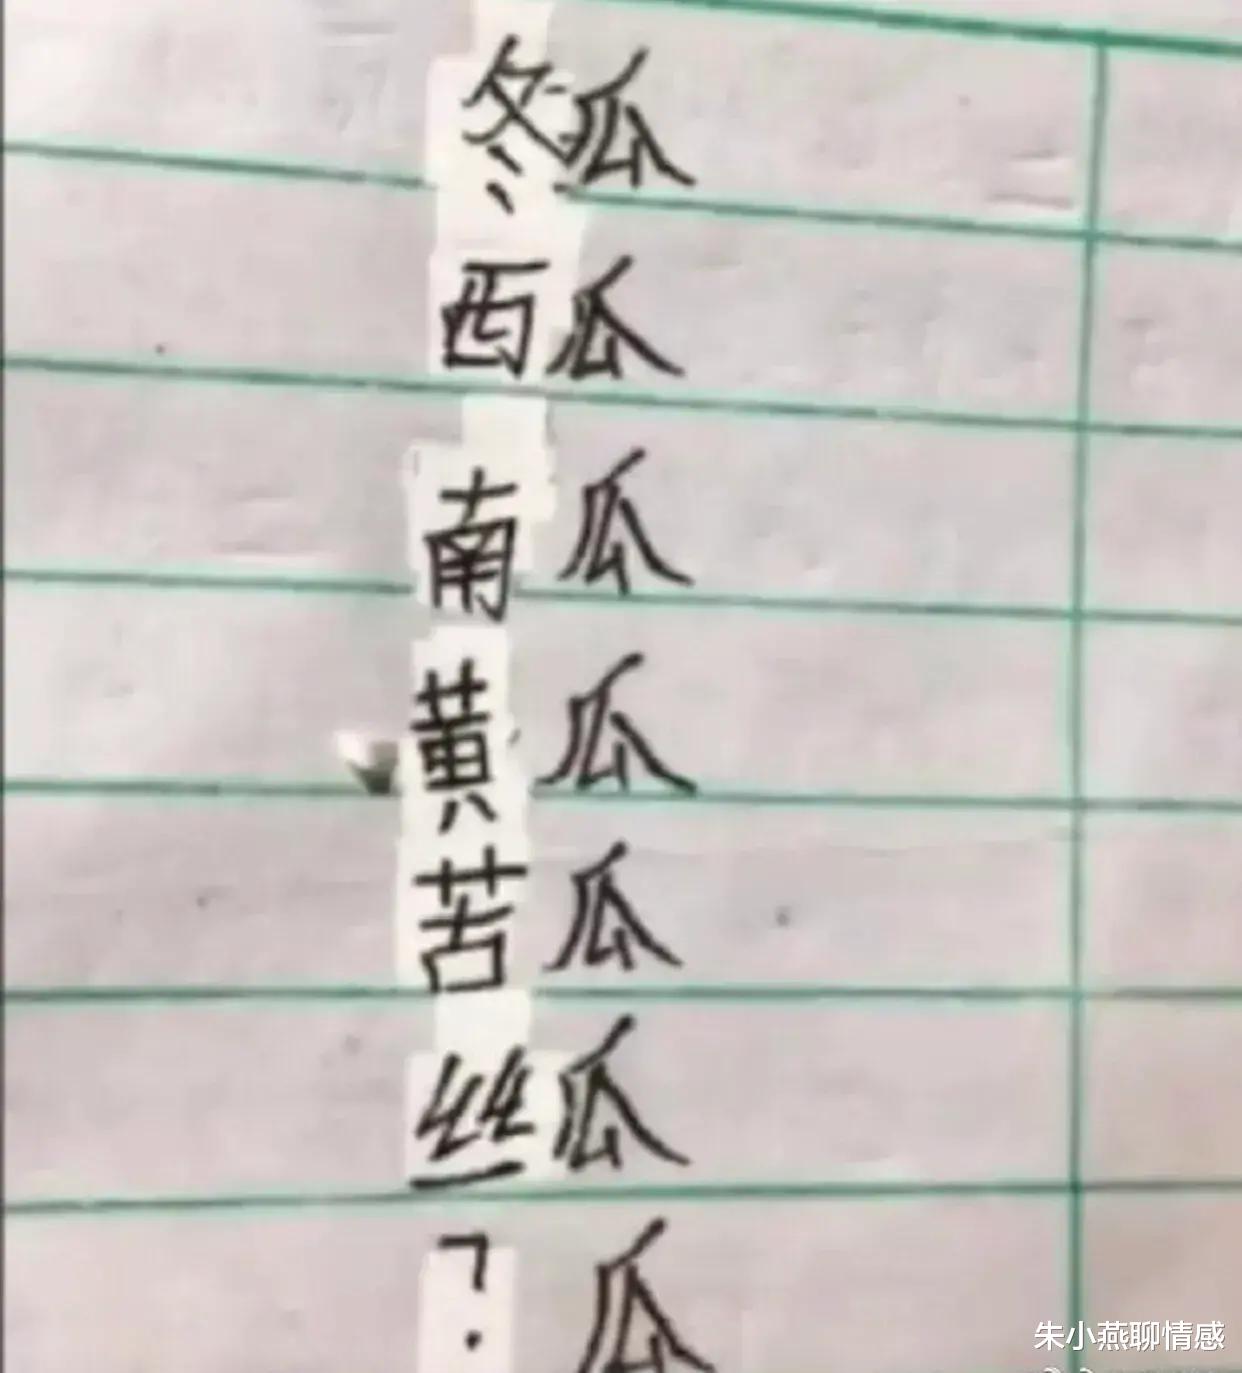 冬瓜
西瓜
南瓜
黄瓜
苦瓜
丝瓜
?瓜
朱小燕聊情感